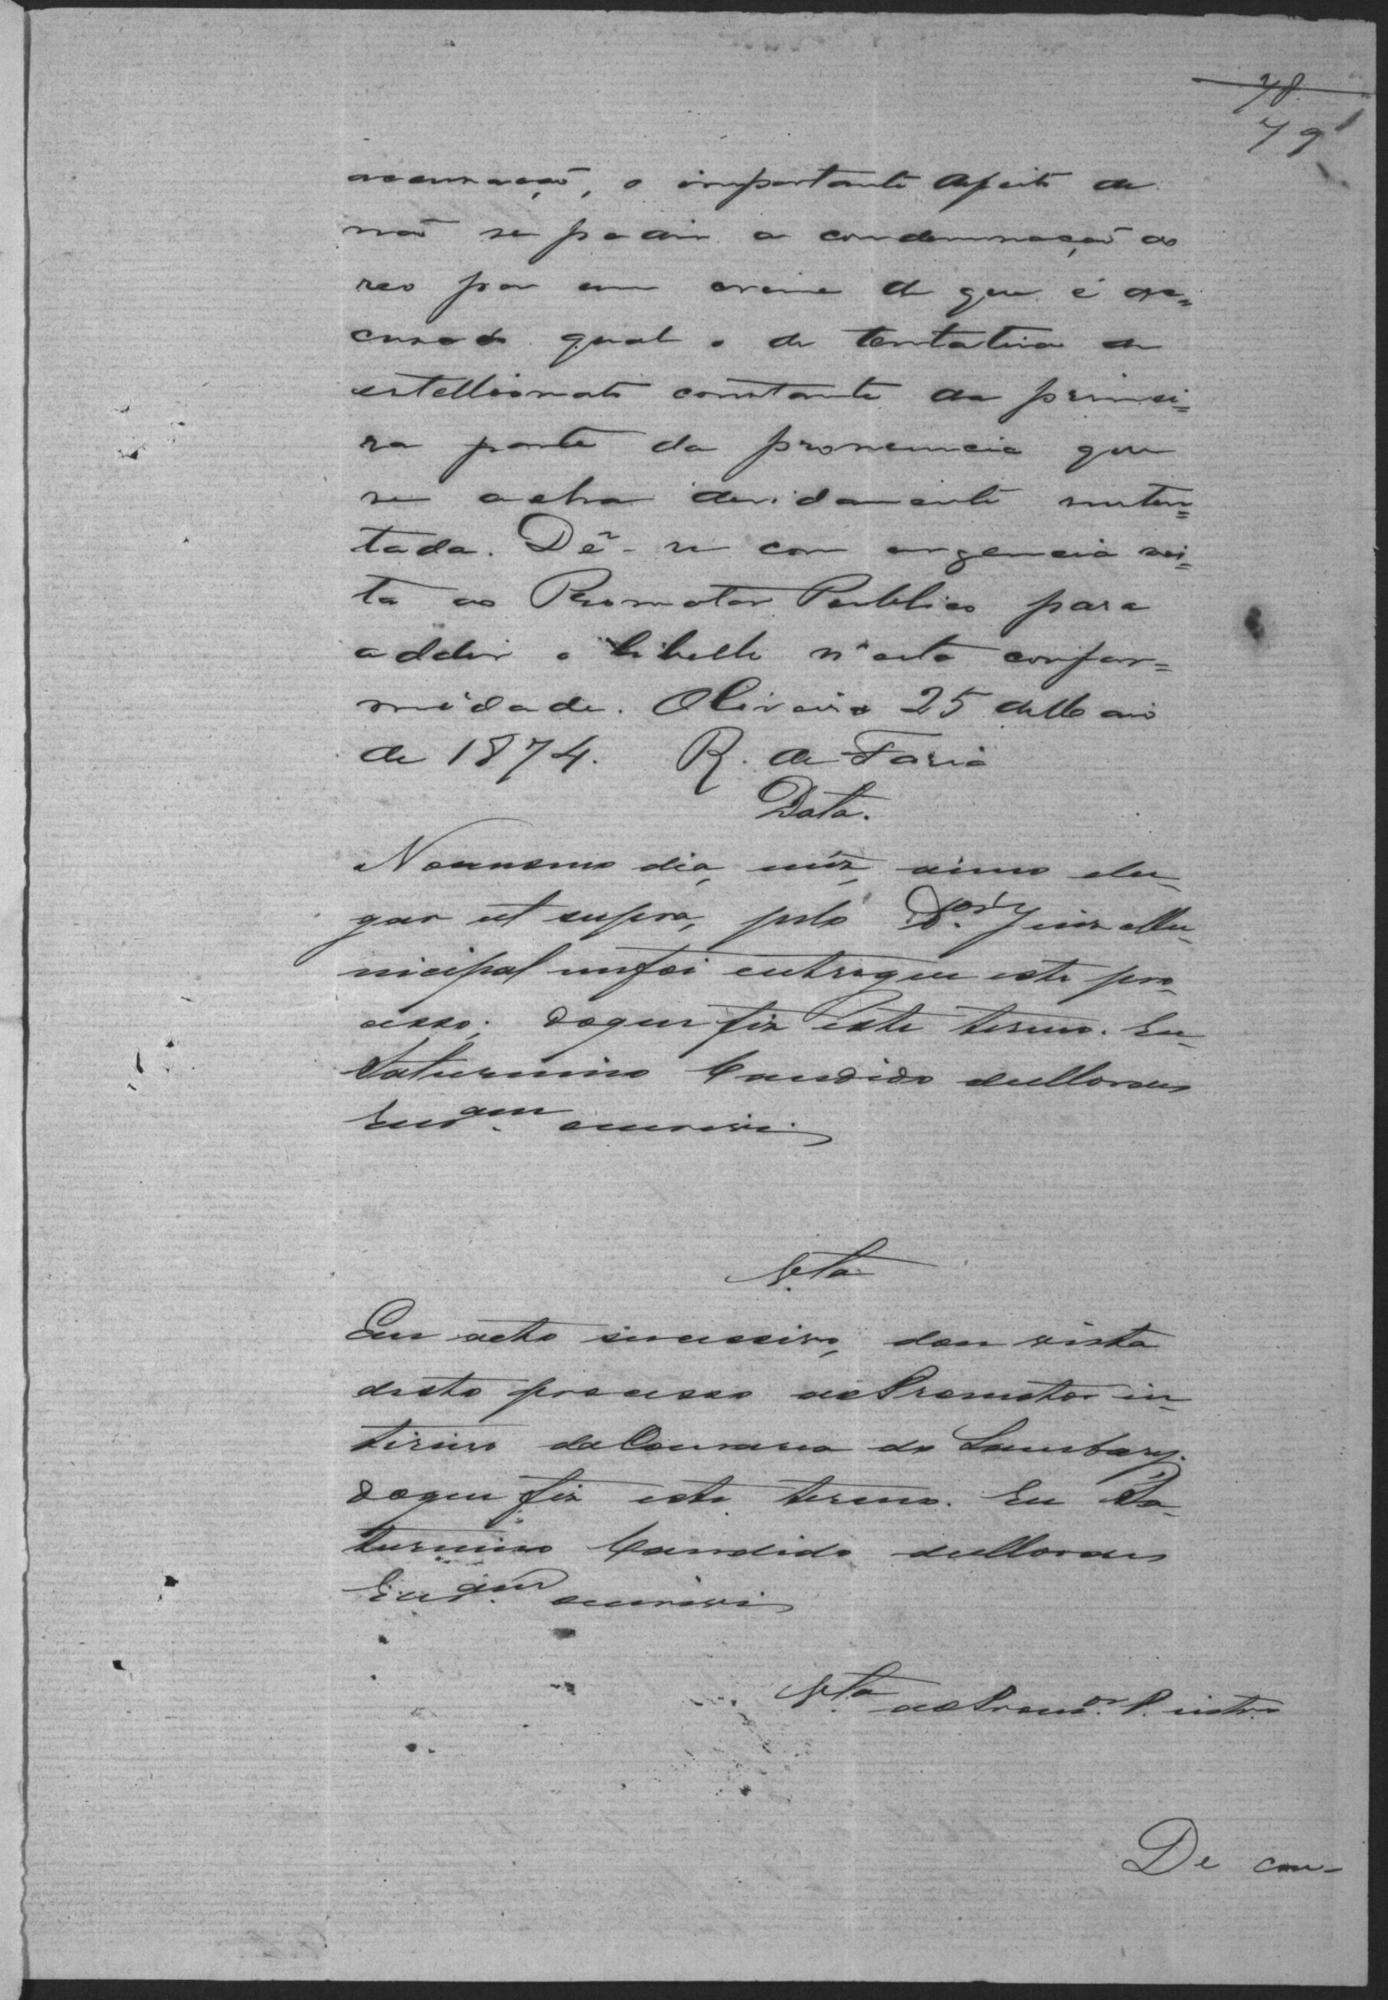 78
79
accusação, o importante defeito de
não se pedir a condemnação do
reo por um crime de que é ac=
cusado qual o de tentativa de
estellionato constante da primei=
ra parte da pronuncia que
se acha devidamente susten=
tada. Dê-se com urgencia vis=
ta ao Promotor Publico para
addir o libello n'esta confor=
midade. Oliveira 25 de Maio
de 1874. R. de Faria
Data.
No mesmo dia, mêz, anno e lu-
gar ut supra, pelo Dor. Juiz Mu-
nicipal me foi entregue este pro-
cesso; do que fiz este termo. Eu
Saturnino Candido de Moraes
Escram. escrevi
Vta
Em acto sucessivo, dou vista
deste processo ao Promotor in-
terino da Comarca do Lambary.
do que fiz este termo. Eu Sa-
turnino Candido de Moraes
Escram. escrevi
Vta ao Promor. P. intro.
De con-